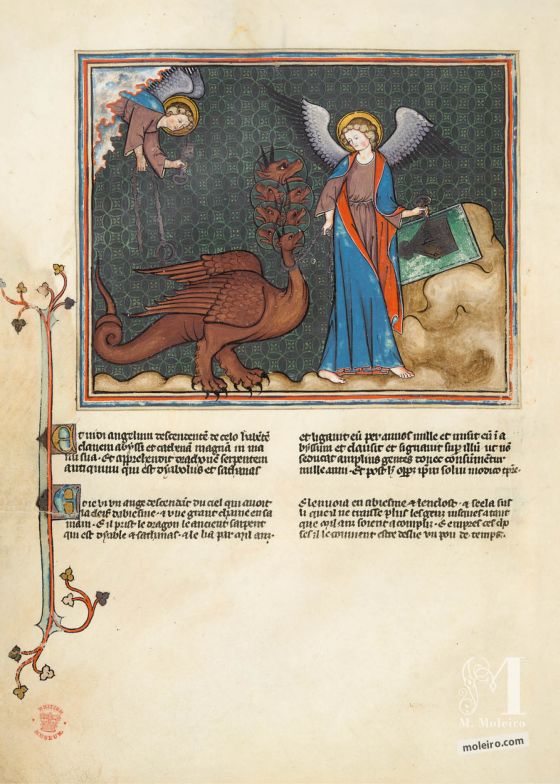 Et vidi angelum descendentē de celo habētē
clavem abyssi et cathenā magnā in ma
nu sua · Et apprehendit draconē serpentem
antiquum qui est dyabolus et sathanas
et ligavit eū per annos mille et misit eū ī a
byssum et clausit et signavit sup illū ut nō
seducat amplius gentes donec consūmētur
mille anni · Et post h oportet solvi modico tpre ·
E ie vi un ange descendant du ciel qui avoit
la cleif dabiesme · e une grant chaene en sa
main · E il prist le dragon le ancient serpent
qui est dyable e sathanas · e le lia par mil anz ·
E lenvoia en abiesme e lenclost · e seela sus
li que il ne traisse plus les genz iusques a tant
que mil anz soient acompliz · E empres ces
il le covient estre deslie un pou de temps ·
BRITISH
MUSEUM
M
M. Moleiro
moleiro.com